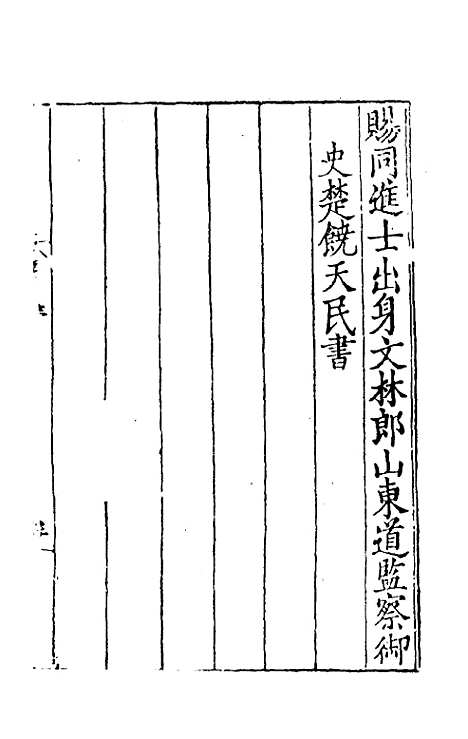 賜同進士出身文林郎山東道監察御
史楚饒天民書